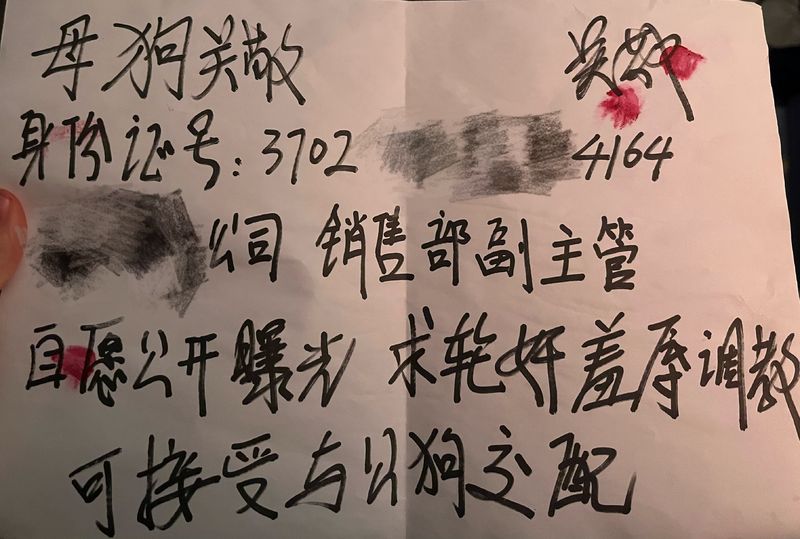 母狗
身份证号：3702 4164
公司 销售部副主管
自愿公开曝光 求轮奸羞辱调教
可接受与公狗交配